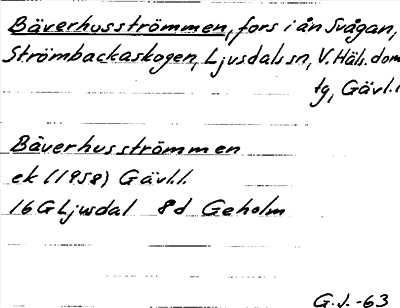 Bäverhusströmmen, fors i ån Svågan,
Strömbackaskogen, Ljusdals sn, V. Häls. dom
tg, Gävl. l
Bäverhusströmmen
ek (1958) Gävl. l.
16G Ljusdal 8d Geholm
G.J. -63